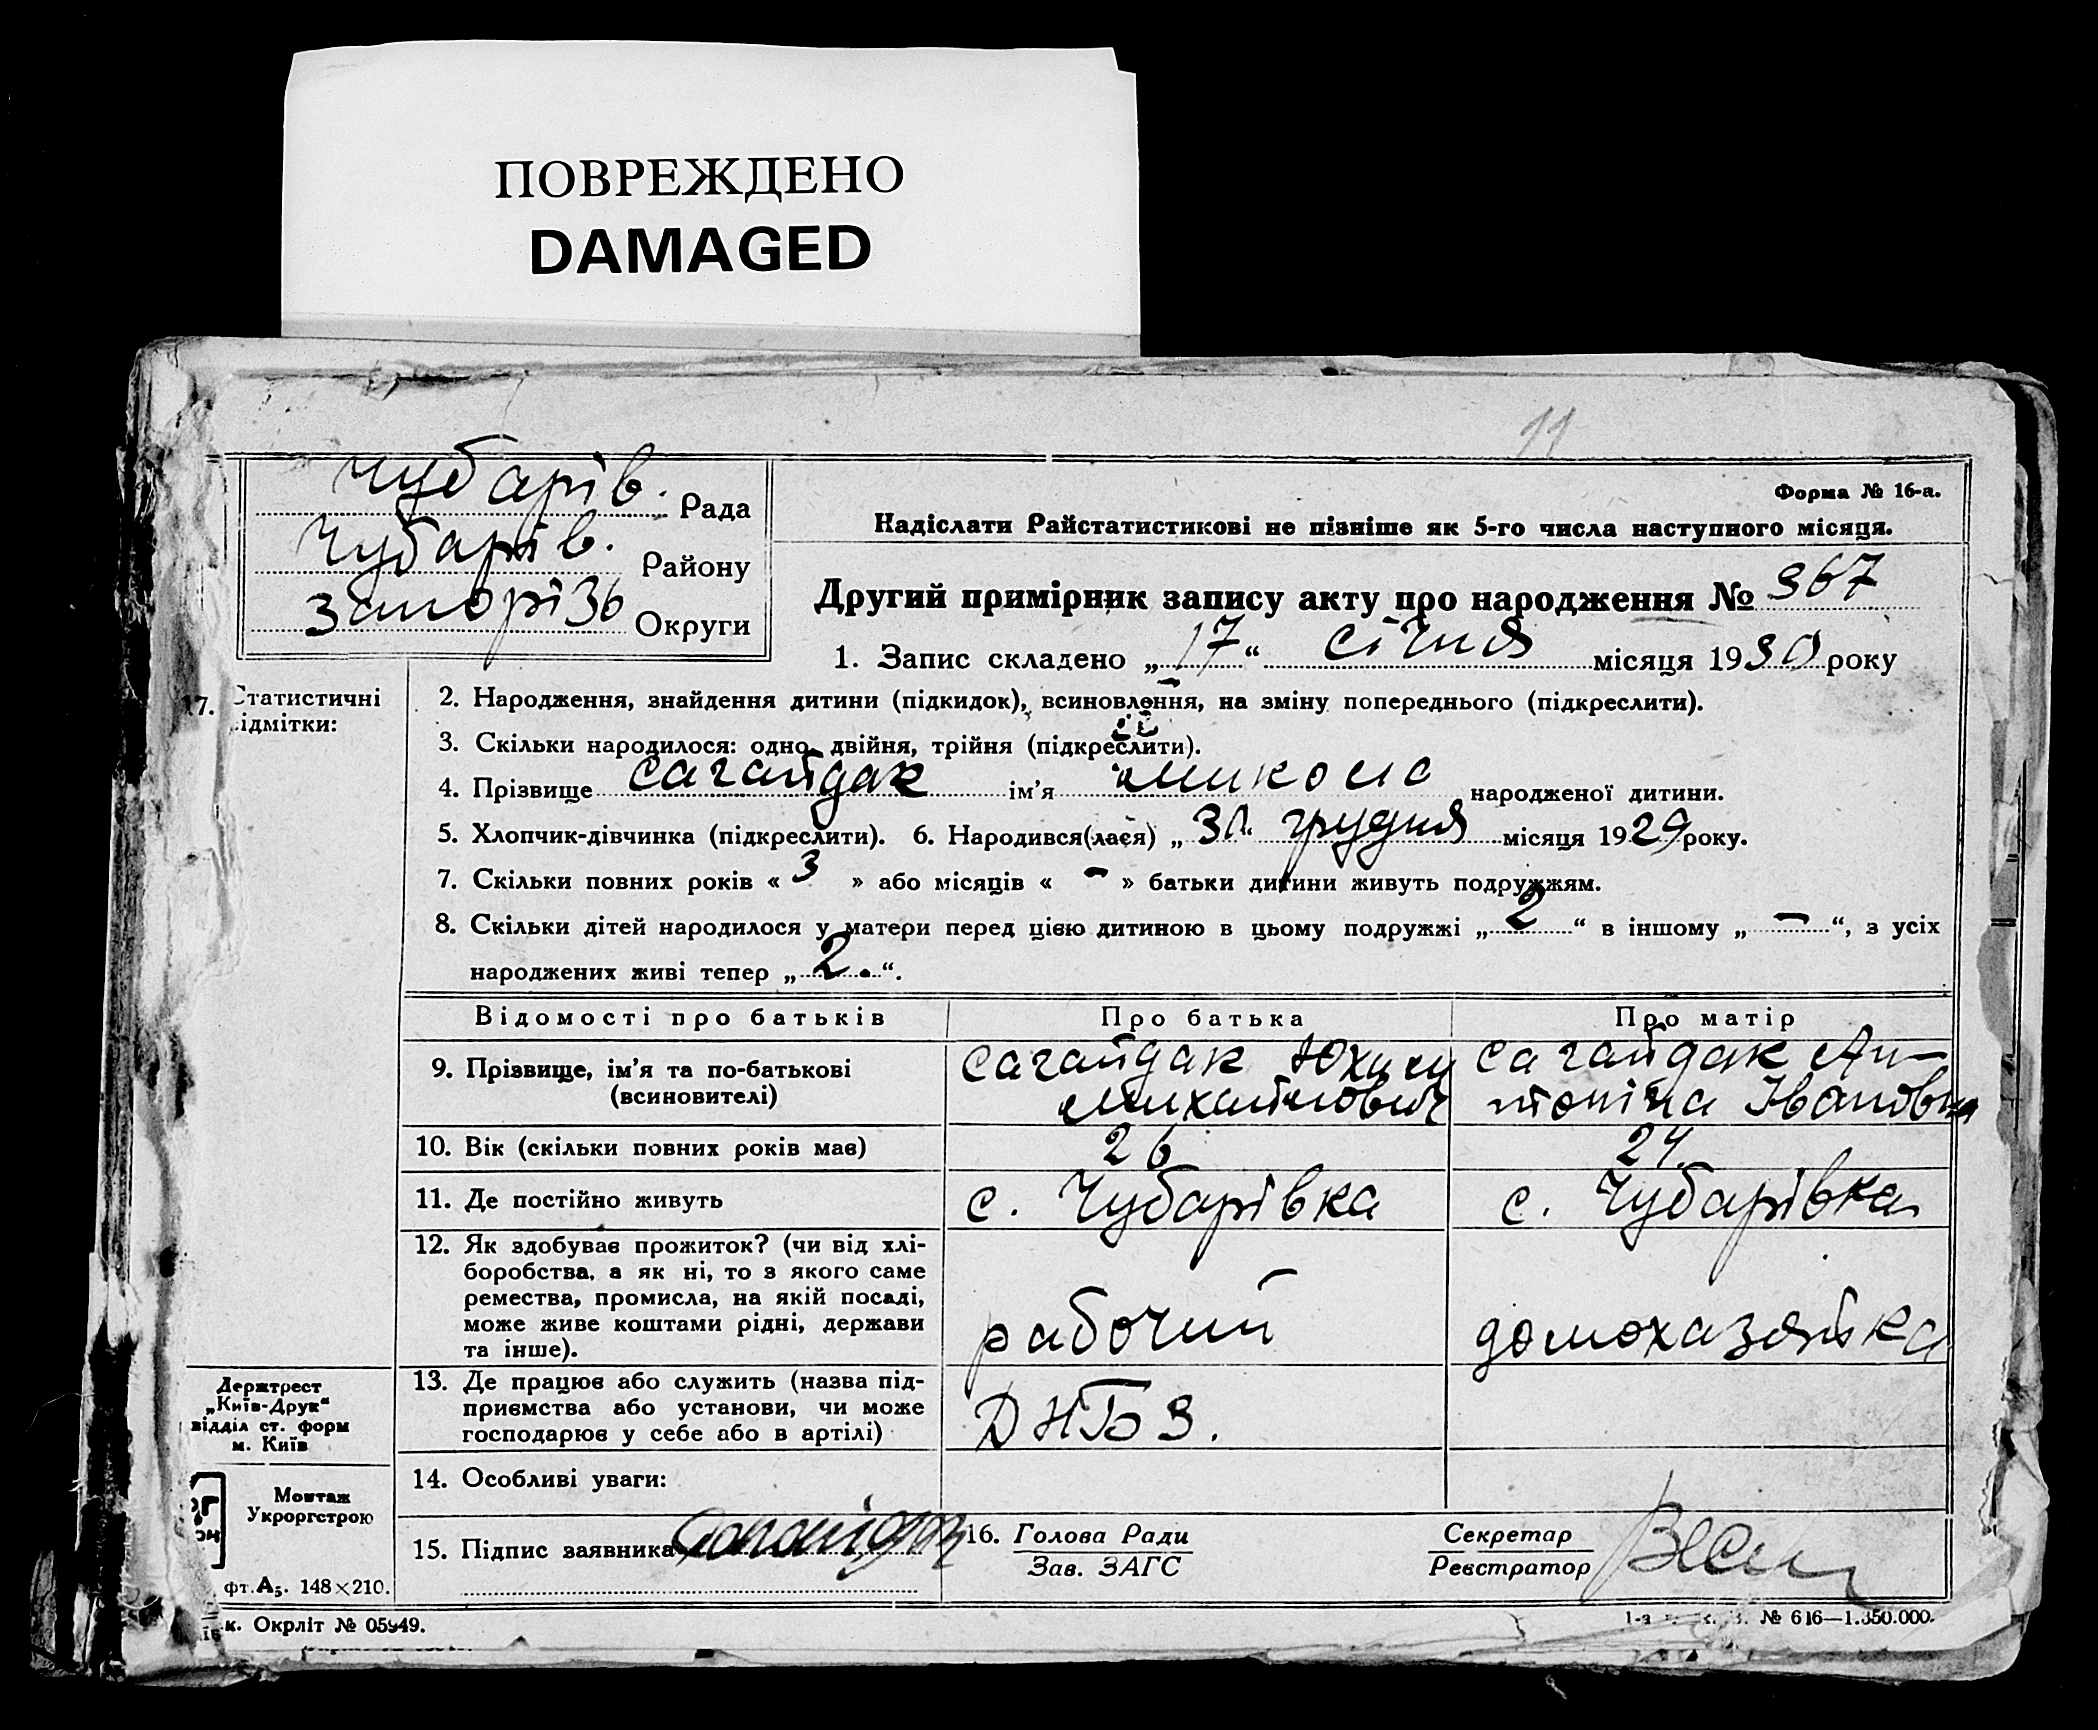 ПОВРЕЖДЕНО
DAMAGED
11
Чубарів. Рада
Чубарів. Району
Запорізь Округи
Форма № 16-а.
Надіслати Райстатистикові не пізніше як 5-го числа наступного місяця.
Другий примірник запису акту про народження № 367
1. Запис складено „17“ січня місяця 1930 року
17. Статистичні
відмітки:
2. Народження, знайдення дитини (підкидок), всиновлення, на зміну попереднього (підкреслити).
3. Скільки народилося: одно, двійня, трійня (підкреслити).
4. Прізвище Сагайдак ім'я Микола народженої дитини.
5. Хлопчик-дівчинка (підкреслити). 6. Народився(лася) „30“ грудня місяця 1929 року.
7. Скільки повних років « 3 » або місяців « - » батьки дитини живуть подружжям.
8. Скільки дітей народилося у матери перед цією дитиною в цьому подружжі „2“ в іншому „—“, з усіх
народжених живі тепер „2.“.
Відомості про батьків Про батька Про матір
9. Прізвище, ім'я та по-батькові
(всиновителі)
Сагайдак Юхим
Михайлович
Сагайдак Ан-
тоніна Івановна
10. Вік (скільки повних років має) 26 24.
11. Де постійно живуть с. Чубарівка с. Чубарівка
12. Як здобуває прожиток? (чи від хлі-
боробства, а як ні, то з якого саме
ремества, промисла, на якій посаді,
може живе коштами рідні, держави
та інше).
рабочий домохазяйка
13. Де працює або служить (назва під-
приємства або установи, чи може
господарює у себе або в артілі)
ДНБЗ.
14. Особливі уваги:
15. Підпис заявника Сагайдак
16. Голова Ради
Зав. ЗАГС
Секретар
Реєстратор
Держтрест
„Київ-Друк“
відділ ст. форм
м. Київ
Монтаж
Укроргстрою
фт. А5. 148×210.
к. Окрліт № 05949.
№ 616—1.350.000.